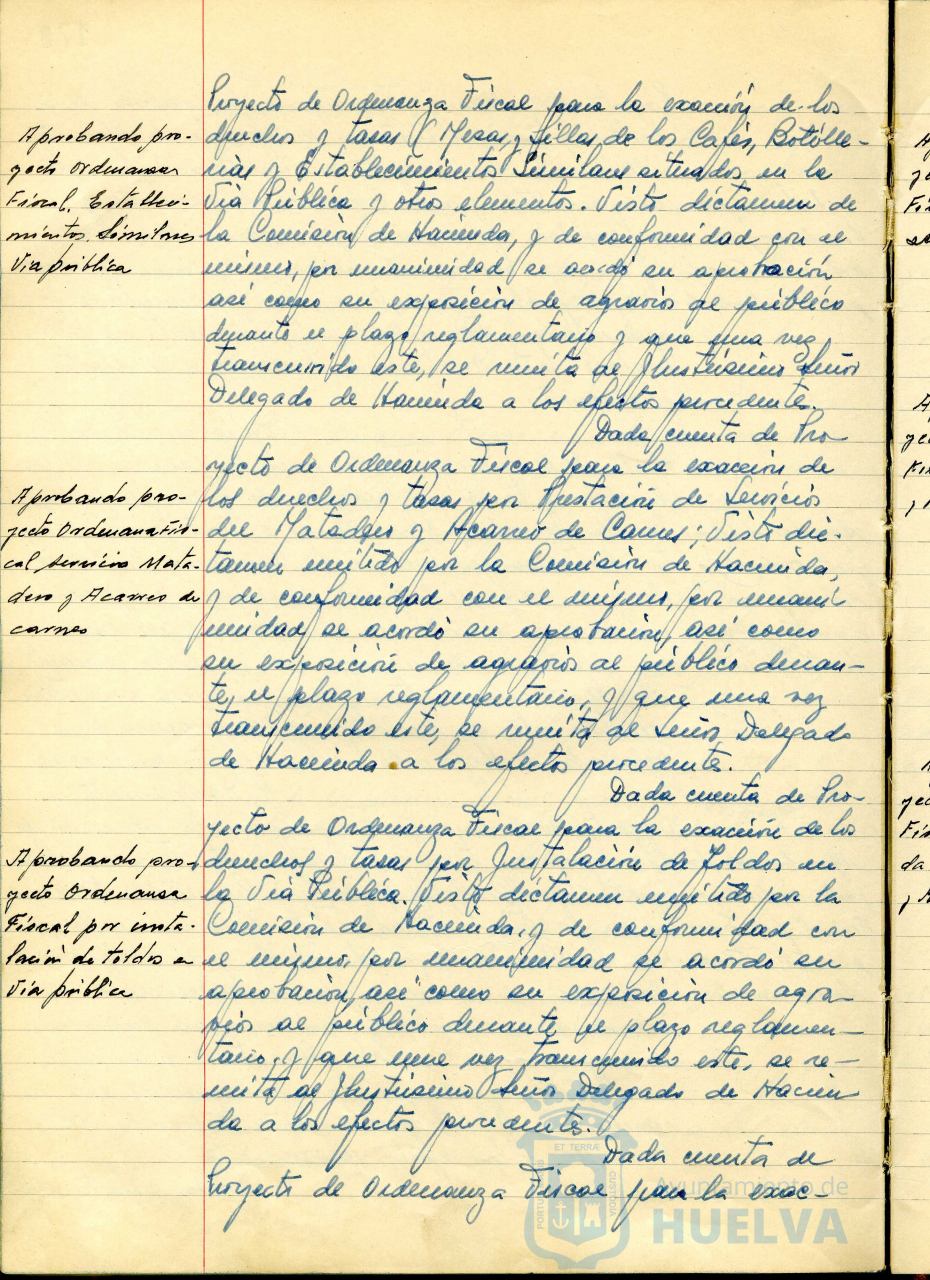 Proyecto de Ordenanza Fiscal para la exación de los
Aprobando pro-
yecto Ordenanza
Fiscal. Estableci-
mientos Similares
Via pública
derechos y tasas (Mesas y sillas de los Cafés, Botille-
rias y Establecimientos Similares situados en la
Via Pública y otros elementos. Visto dictamen de
la Comisión de Hacienda, y de conformidad con el
mismo, por unanimidad se acordó su aprobación
así como su exposición de agravios al público
durante el plazo reglamentario y que una vez
transcurrido este, se remita al Ilustrisimo Señor
Delegado de Hacienda a los efectos procedentes.
Dada cuenta de Pro-
yecto de Ordenanza Fiscal para la exacción de
Aprobando pro-
yecto Ordenanza Fis-
cal, servicio Mata-
dero y Acarreo de
carnes
los derechos y tasas por Prestación de Servicios
del Matadero y Acarreo de Carnes; Visto dic-
tamen emitido por la Comisión de Hacienda,
y de conformidad con el mismo, por unani-
midad se acordó su aprobación, así como
su exposición de agravios al público duran-
te, el plazo reglamentario, y que una vez
transcurrido este, se remita al Señor Delegado
de Hacienda a los efectos procedentes.
Dada cuenta de Pro-
yecto de Ordenanza Fiscal para la exacción de los
Aprobando pro-
yecto Ordenanza
Fiscal por insta-
lación de toldos en
Via pública
derechos y tasas por Instalación de Toldos en
la Via Pública. Visto dictamen emitido por la
Comisión de Hacienda, y de conformidad con
el mismo, por unanimidad se acordó su
aprobación, así como su exposición de agra-
vios al público durante el plazo reglamen-
tario, y que una vez transcurrido este, se re-
mita al Ilustrisimo Señor Delegado de Hacien
da a los efectos procedentes.
Dada cuenta de
Proyecto de Ordenanza Fiscal para la exac-
ET TERRÆ
PORTUS
CUSTODIA
Ayuntamiento de
HUELVA